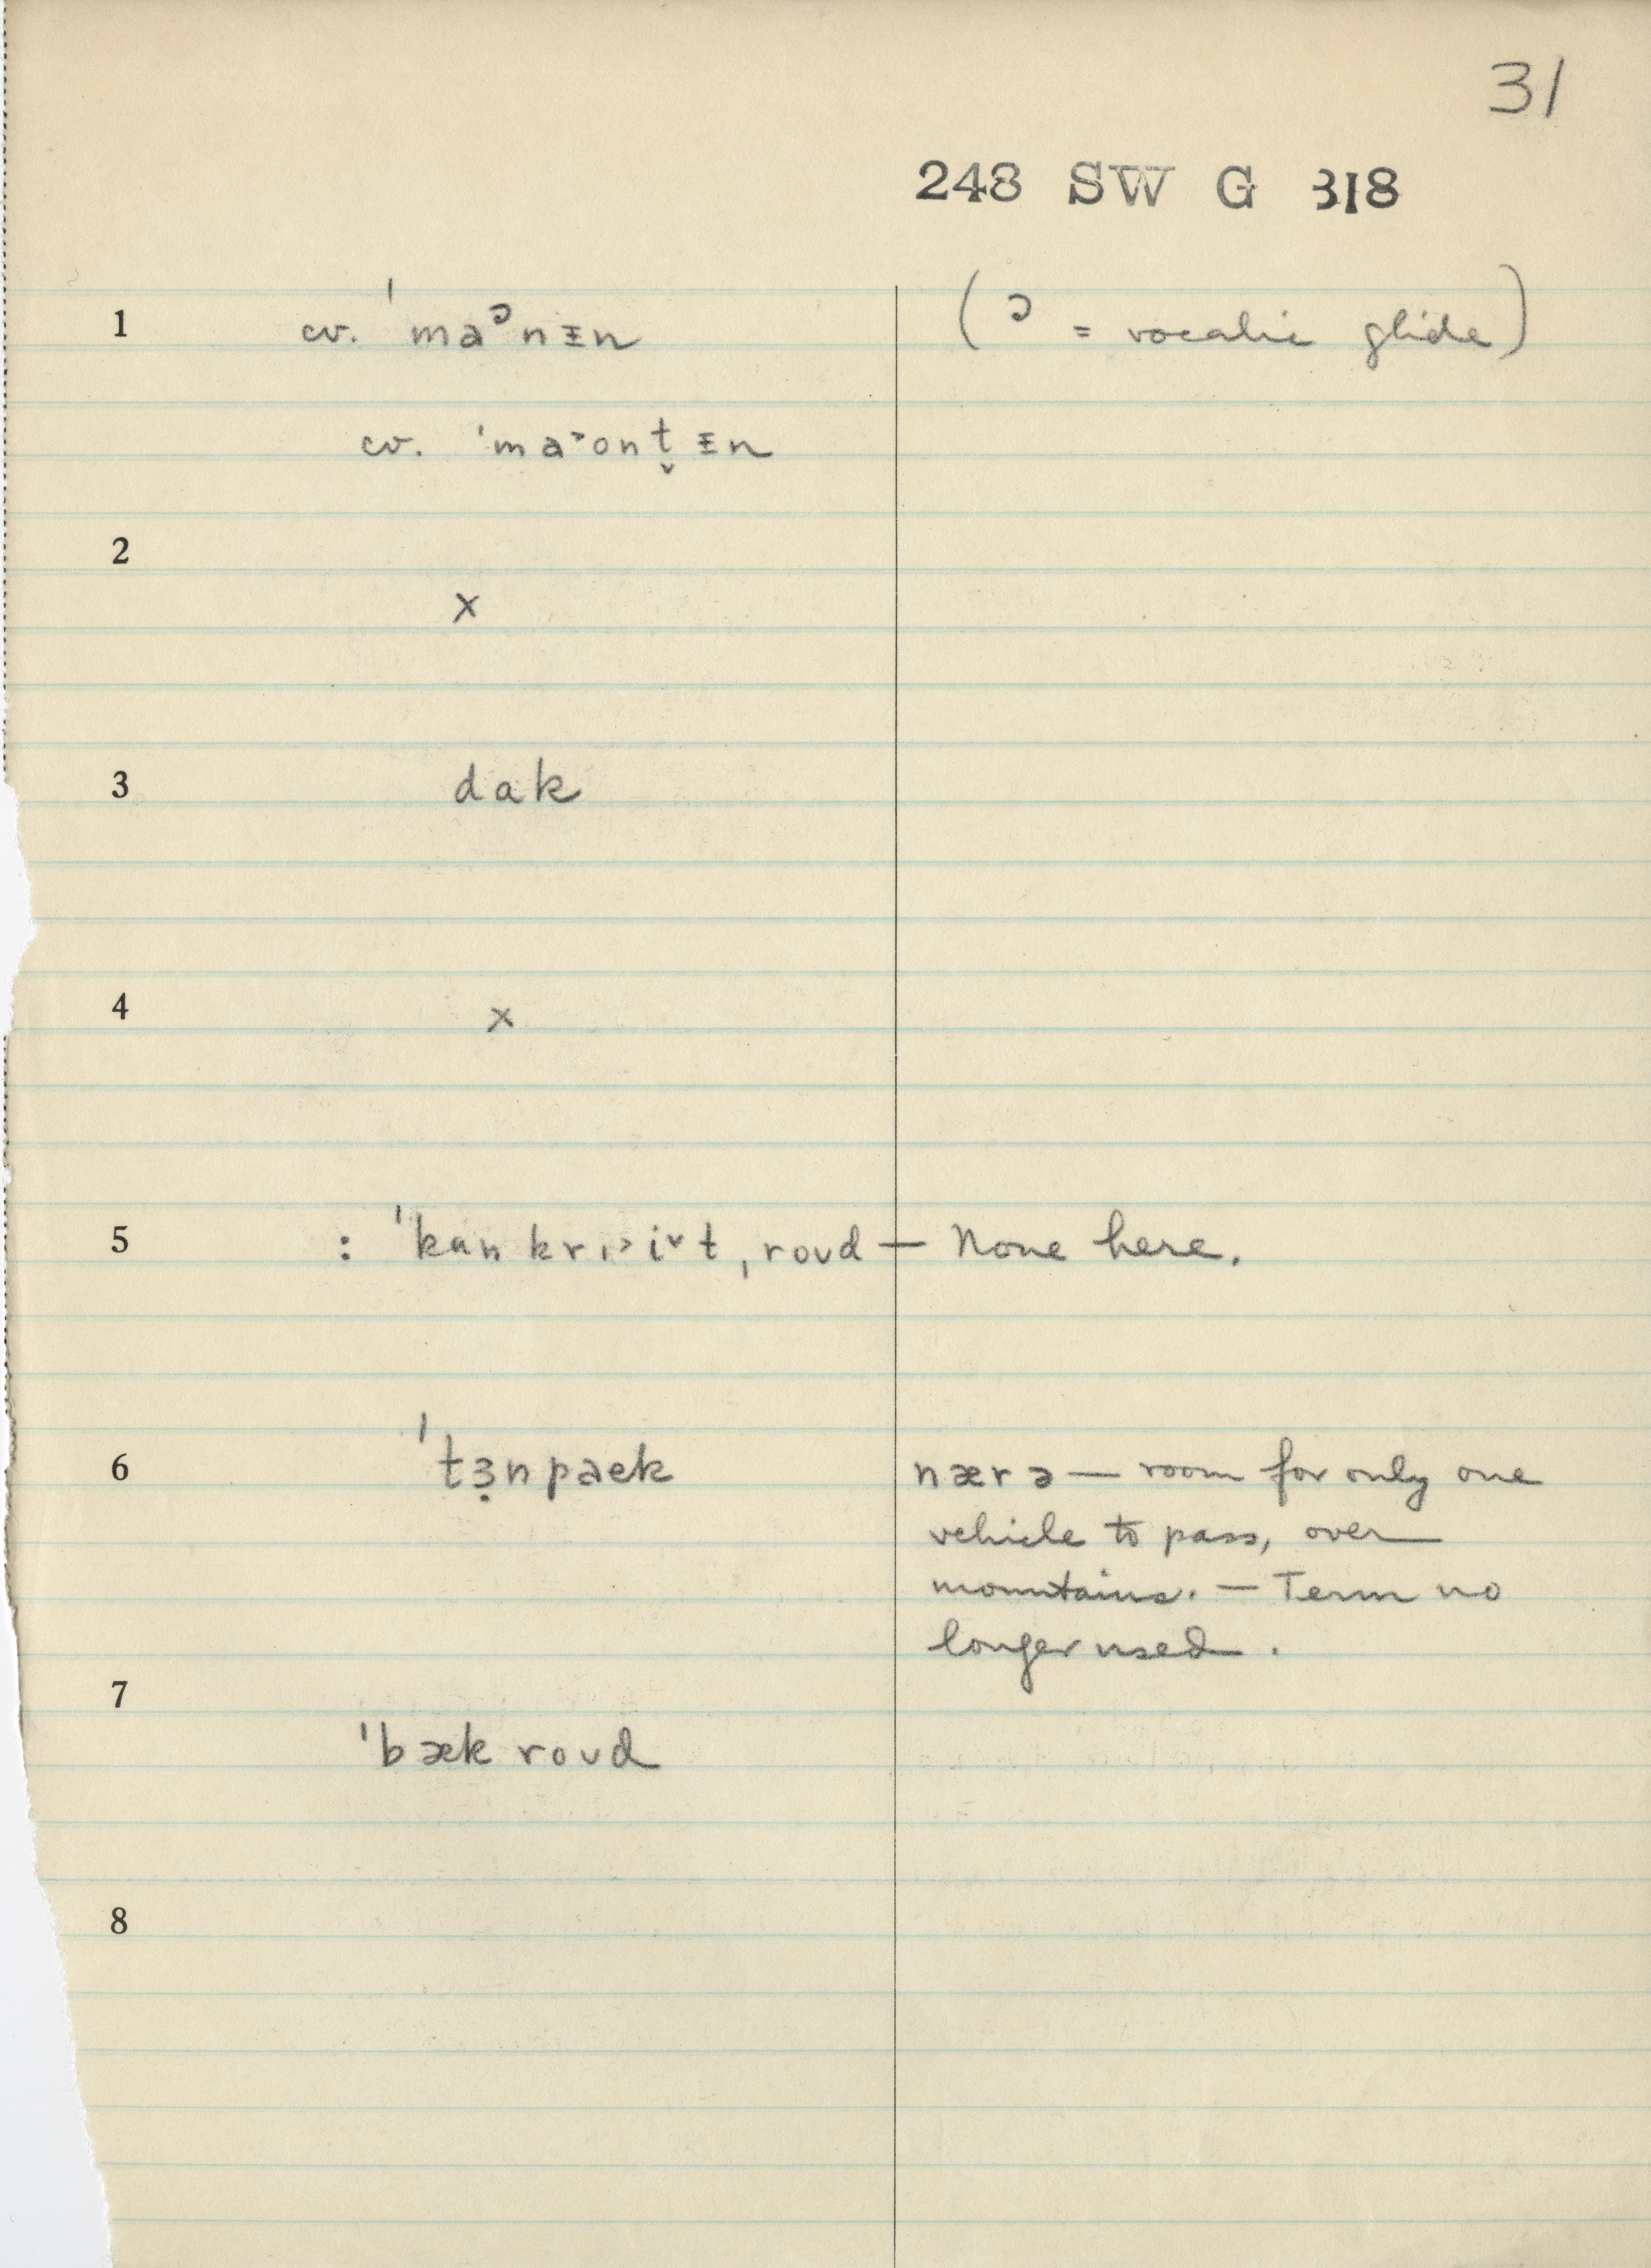 31
248 SW G 318
1 cv. ˈmaᵓnᵻn (ᵓ = vocalic glide)
cv. ˈma˃ont̬ᵻn
2
x
3 dak
4 x
5 : ˈkɑnkrɪ˃i˅t ˌroʊd — None here.
6 ˈtɜ̣npaɛk nærə — room for only one
vehicle to pass, over
mountains. — Term no
longer used.
7
ˈbæk roʊd
8